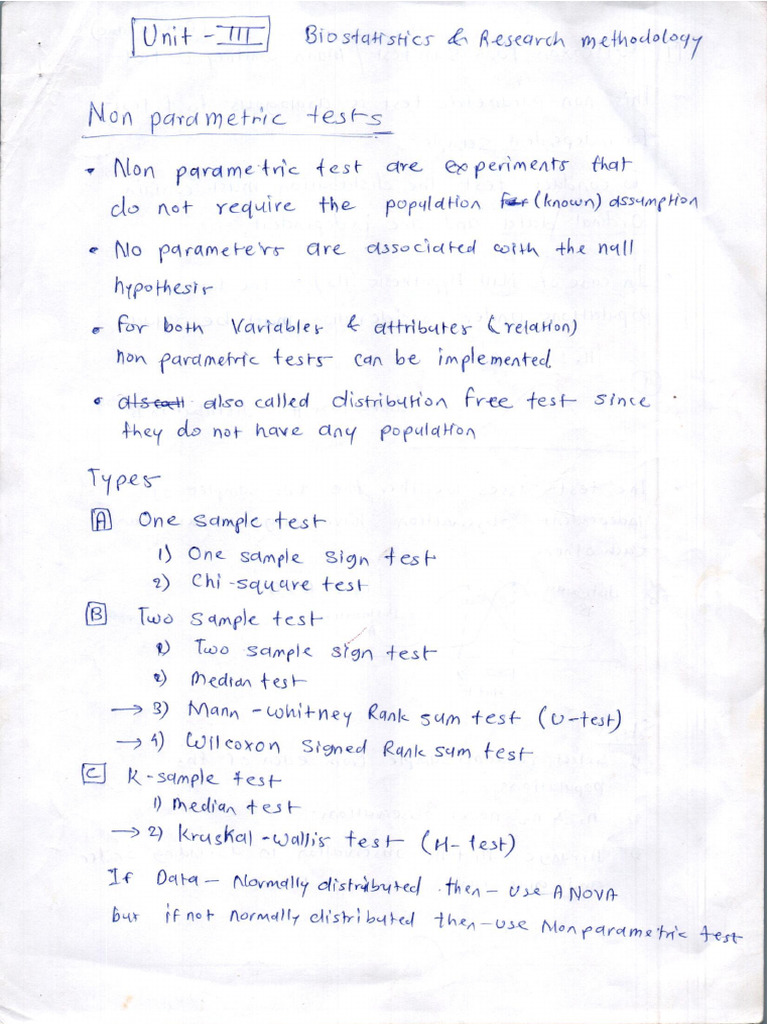 Unit - III Biostatistics & Research methodology
Non parametric tests
• Non parametric test are experiments that
do not require the population for (known) assumption
• No parameters are associated with the null
hypothesis
• for both variables & attributes (relation)
non parametric tests can be implemented.
• als call also called distribution free test since
they do not have any population
Types
A One sample test
1) One sample sign test
2) Chi-square test
B Two sample test
1) Two sample sign test
2) Median test
→ 3) Mann-Whitney Rank sum test (U-test)
→ 4) Wilcoxon signed Rank sum test
C K-sample test
1) Median test
→ 2) Kruskal-Wallis test (H-test)
If Data - Normally distributed then - use ANOVA
but if not normally distributed then - use Nonparametric test